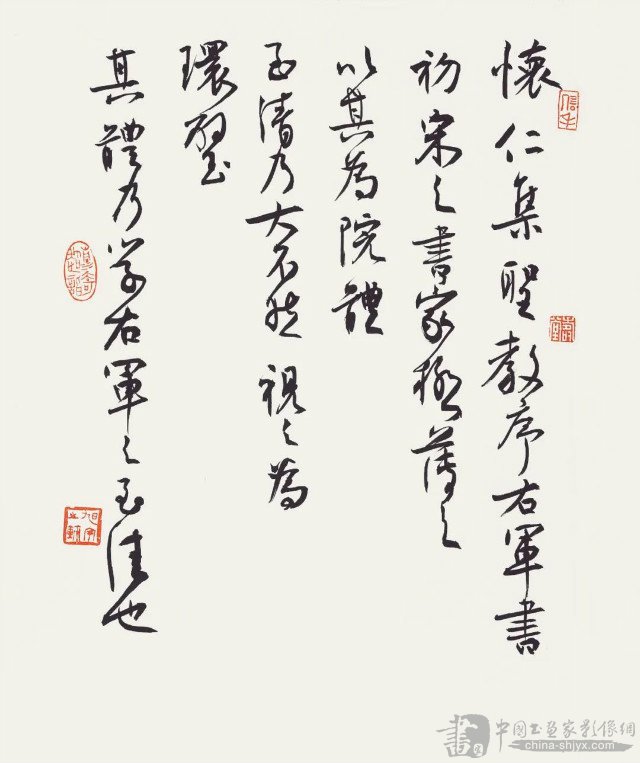 懷仁集聖教序右軍書
初宋之書家極薄之
以其為院體
至清乃大不然視之為
環璧
其體乃學右軍之至佳也
旭宇
中國書畫家影像網
china-shjyx.com